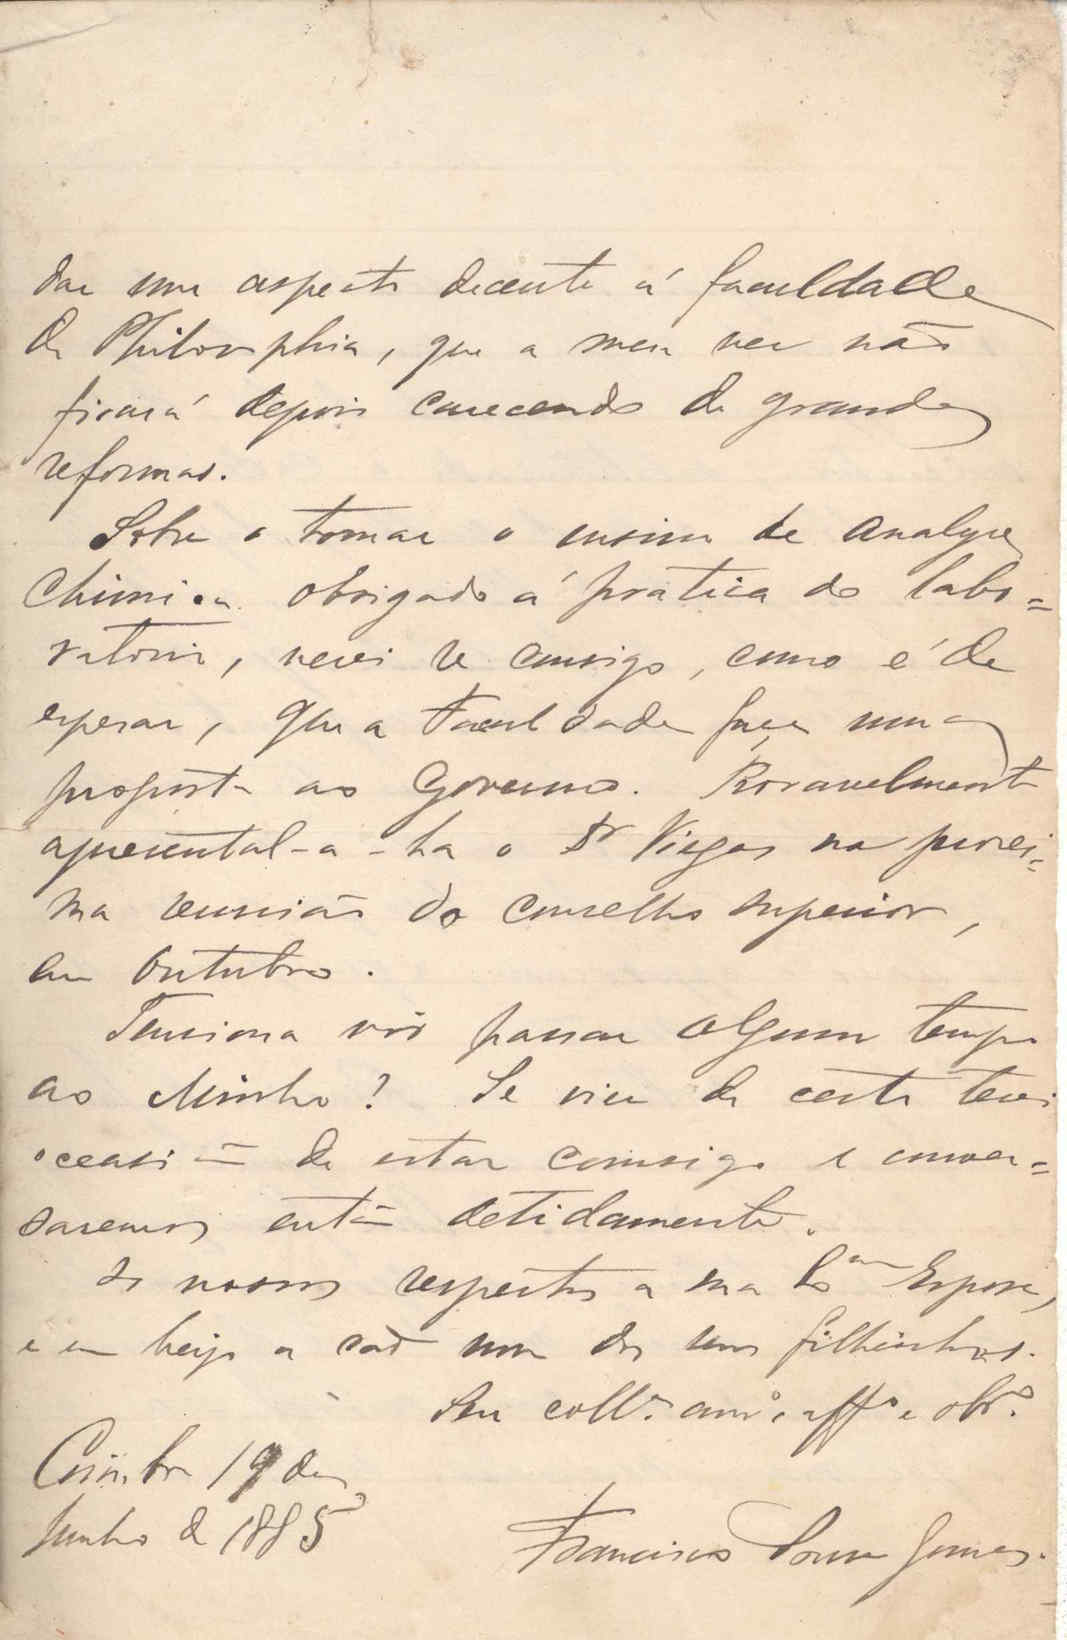 dar um aspecto decente á faculdade
de Philosophia, que a meu ver não
ficará depois carecendo de grandes
reformas.
Sobre o tornar o ensino de analyse
chimica obrigado á pratica do labo=
ratorio, verei se consigo, como é de
esperar, que a Faculdade faça uma
proposta ao Governo. Provavelmente
apresental-a-ha o Dr Viegas na proxi=
ma reunião do conselho superior,
em Outubro.
Tenciona vir passar algum tempo
ao Minho? Se vier de certo terei
occasião de estar comsigo e conver=
saremos então detidamente.
Os nossos respeitos a sua Ex.ma Esposa,
e um beijo a cada um dos seus filhinhos.
Seu coll.a am.o, aff.o e obr.o
Coimbra 19 de
Junho de 1885
Francisco Sousa Gomes.